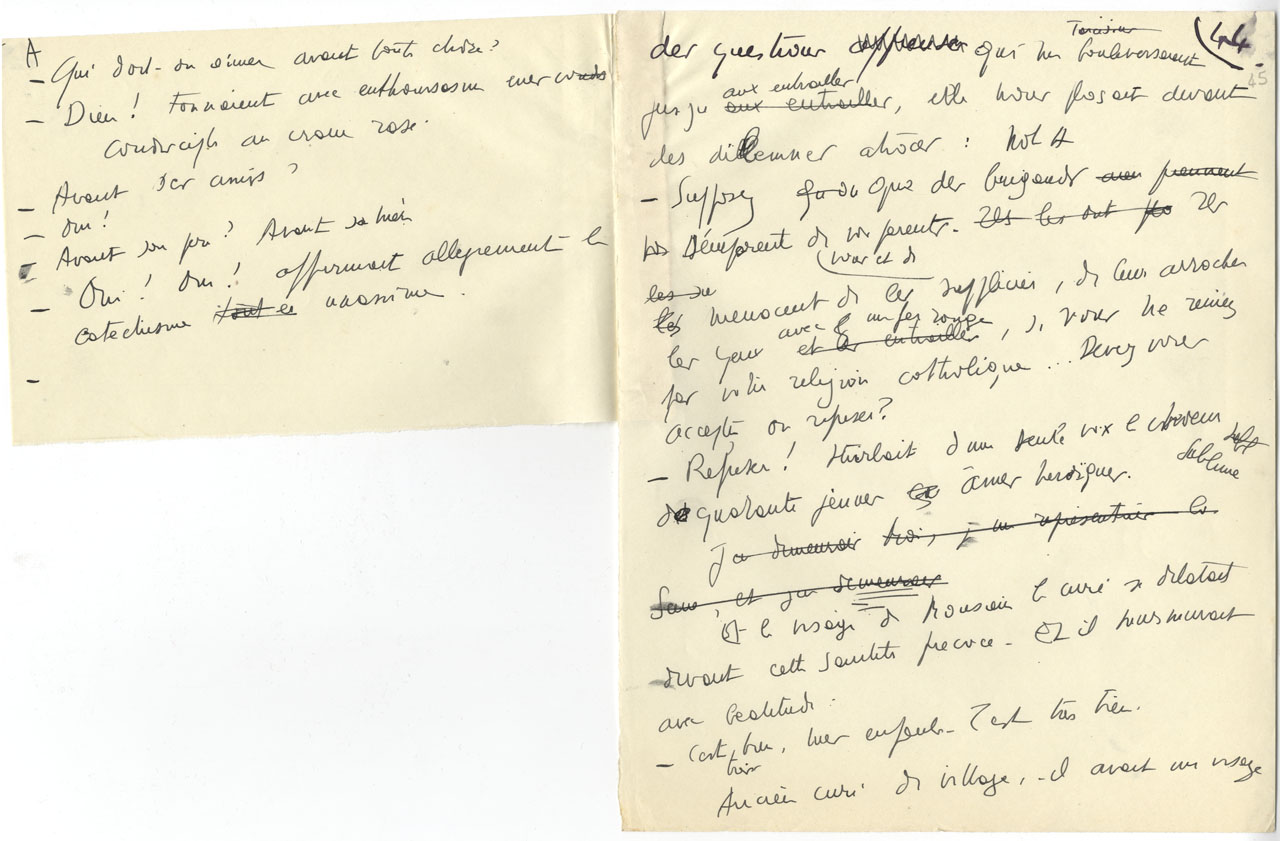 A
- Qui doit-on aimer avant tout chose?
- Dieu! tonnaient avec enthousiasme mes
condisciples au crâne rasé.
- Avant ses amis?
- Oui!
- Avant son père? Avant sa mère
- Oui! Oui! affirmait allègrement le
catéchisme tout unanime.
-
44
45
des questions qui me bouleversaient
aux entrailles
jusqu'aux entrailles, elle nous posait devant
des dilemmes atroces: Not A
- Supposez qu'on que des brigands prennent
s'emparent de vos parents. Ils les ont Ils
vous et de
les
les menacent de les supplicier, de leur arracher
avec un fer rouge
les yeux et les entrailles, si vous ne reniez
pas votre religion catholique... Devez vous
accepter ou refuser?
- Refuser! hurlait d'une seule voix le choeur
sublime
de quarante jeunes âmes héroïques.
J'en demeurais
et j'en demeurais
Et le visage de Monsieur le curé se dilatait
devant cette sainteté précoce. Et il murmurait
avec béatitude.
- C'est bien, mes enfants. C'est très bien.
très
Ancien curé de village, il avait un visage